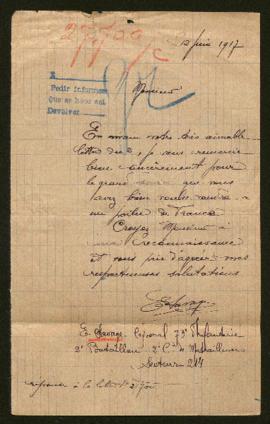 27,700/c
12 Juin 1917
Monsieur
Pedir informes
Que se hace asi
Devolver
En main votre très aimable
lettre du je vous remercie
bien sincèrement pour
le grand que vous
avez bien voulu rendre
un poilu de France
Croyez Monsieur à
ma reconnaissance
et vous prie d'agréer mes
respectueuses salutations
E. Caporal 73e Infanterie
2e Bataillon 2e Cie de Mitrailleuses
Secteur 214
réponse à la lettre